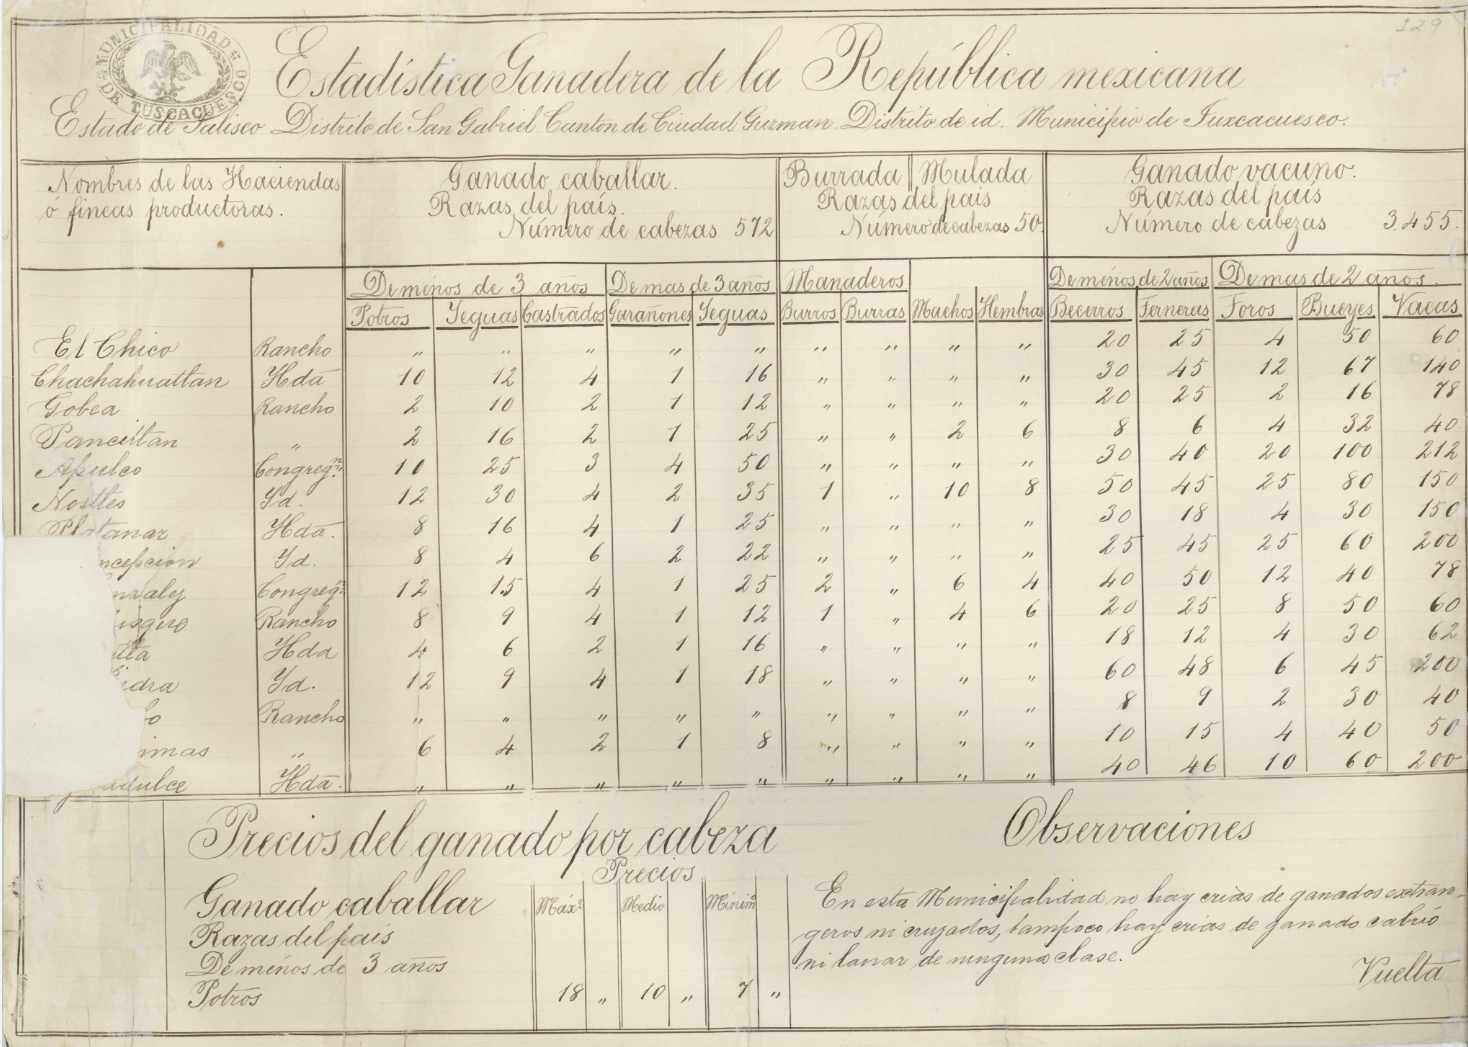 129
MUNICIPALIDAD
DE TUSCACUESCO
Estadística Ganadera de la República mexicana
Estado de Jalisco. Distrito de San Gabriel Canton de Ciudad Guzman Distrito de id. Municipio de Tuxcacuesco.
Nombres de las Haciendas Ganado caballar. Burrada Mulada Ganado vacuno.
ó fincas productoras. Razas del país. Razas del país Razas del país
Número de cabezas 572 Número de cabezas 50. Número de cabezas 3.455.
De ménos de 3 años De mas de 3 años Manaderos De ménos de 2 años De mas de 2 anos.
Potros Yeguas Castrados Garañones Yeguas Burros Burras Machos Hembras Becerros Terneras Toros Bueyes Vacas
El Chico Rancho " " " " " " " " " 20 25 4 50 60
Chachahuatlan Hda 10 12 4 1 16 " " " " 30 45 12 67 140
Gobea Rancho 2 10 2 1 12 " " " " 20 25 2 16 78
" 2 16 2 1 25 " " 2 6 8 6 4 32 40
Apulco Congregn. 10 25 3 4 50 " " " " 30 40 20 100 212
Yd. 12 30 4 2 35 1 " 10 8 50 45 25 80 150
Platanar Hda. 8 16 4 1 25 " " " " 30 18 4 30 150
ncepcion Yd. 8 4 6 2 22 " " " " 25 45 25 60 200
Congregn. 12 15 4 1 25 2 " 6 4 40 50 12 40 78
Rancho 8 9 4 1 12 1 " 4 6 20 25 8 50 60
Hda 4 6 2 1 16 " " " " 18 12 4 30 62
edra Yd. 12 9 4 1 18 " " " " 60 48 6 45 200
o Rancho " " " " " " " " " 8 9 2 30 40
imas " 6 4 2 1 8 " " " " 10 15 4 40 50
adulce Hda. " " " " " " " " " 40 46 10 60 200
Precios del ganado por cabeza
Precios
Ganado caballar Máxo Medio Mínimo
Razas del país
De ménos de 3 años
Potros 18 " 10 " 7 "
Observaciones
En esta Municipalidad no hay crias de ganados extran-
geros ni cruzados, tampoco hay crias de ganado cabrió
ni lanar de ninguna clase.
Vuelta